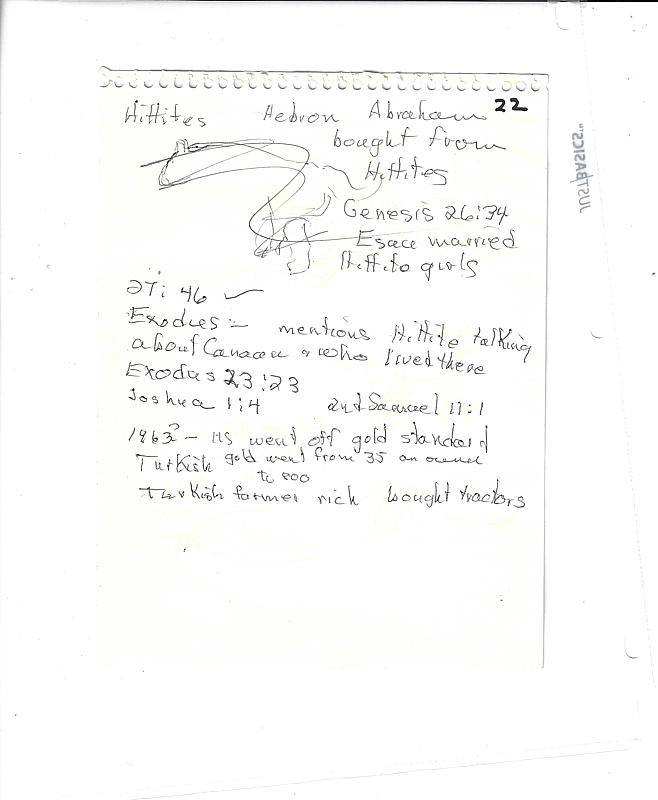 22
Hittites Hebron Abraham
bought from
Hittites
Genesis 26:34
Esau married
Hittite girls
27: 46
Exodus - mentions Hittite talking
about Canaan & who lived there
Exodus 23:23
Joshua 1:4 2nd Samuel 11:1
1963? - US went off gold standard
Turkish gold went from 35 an ounce
to 800
Turkish farmer rich bought tractors
JUST BASICS